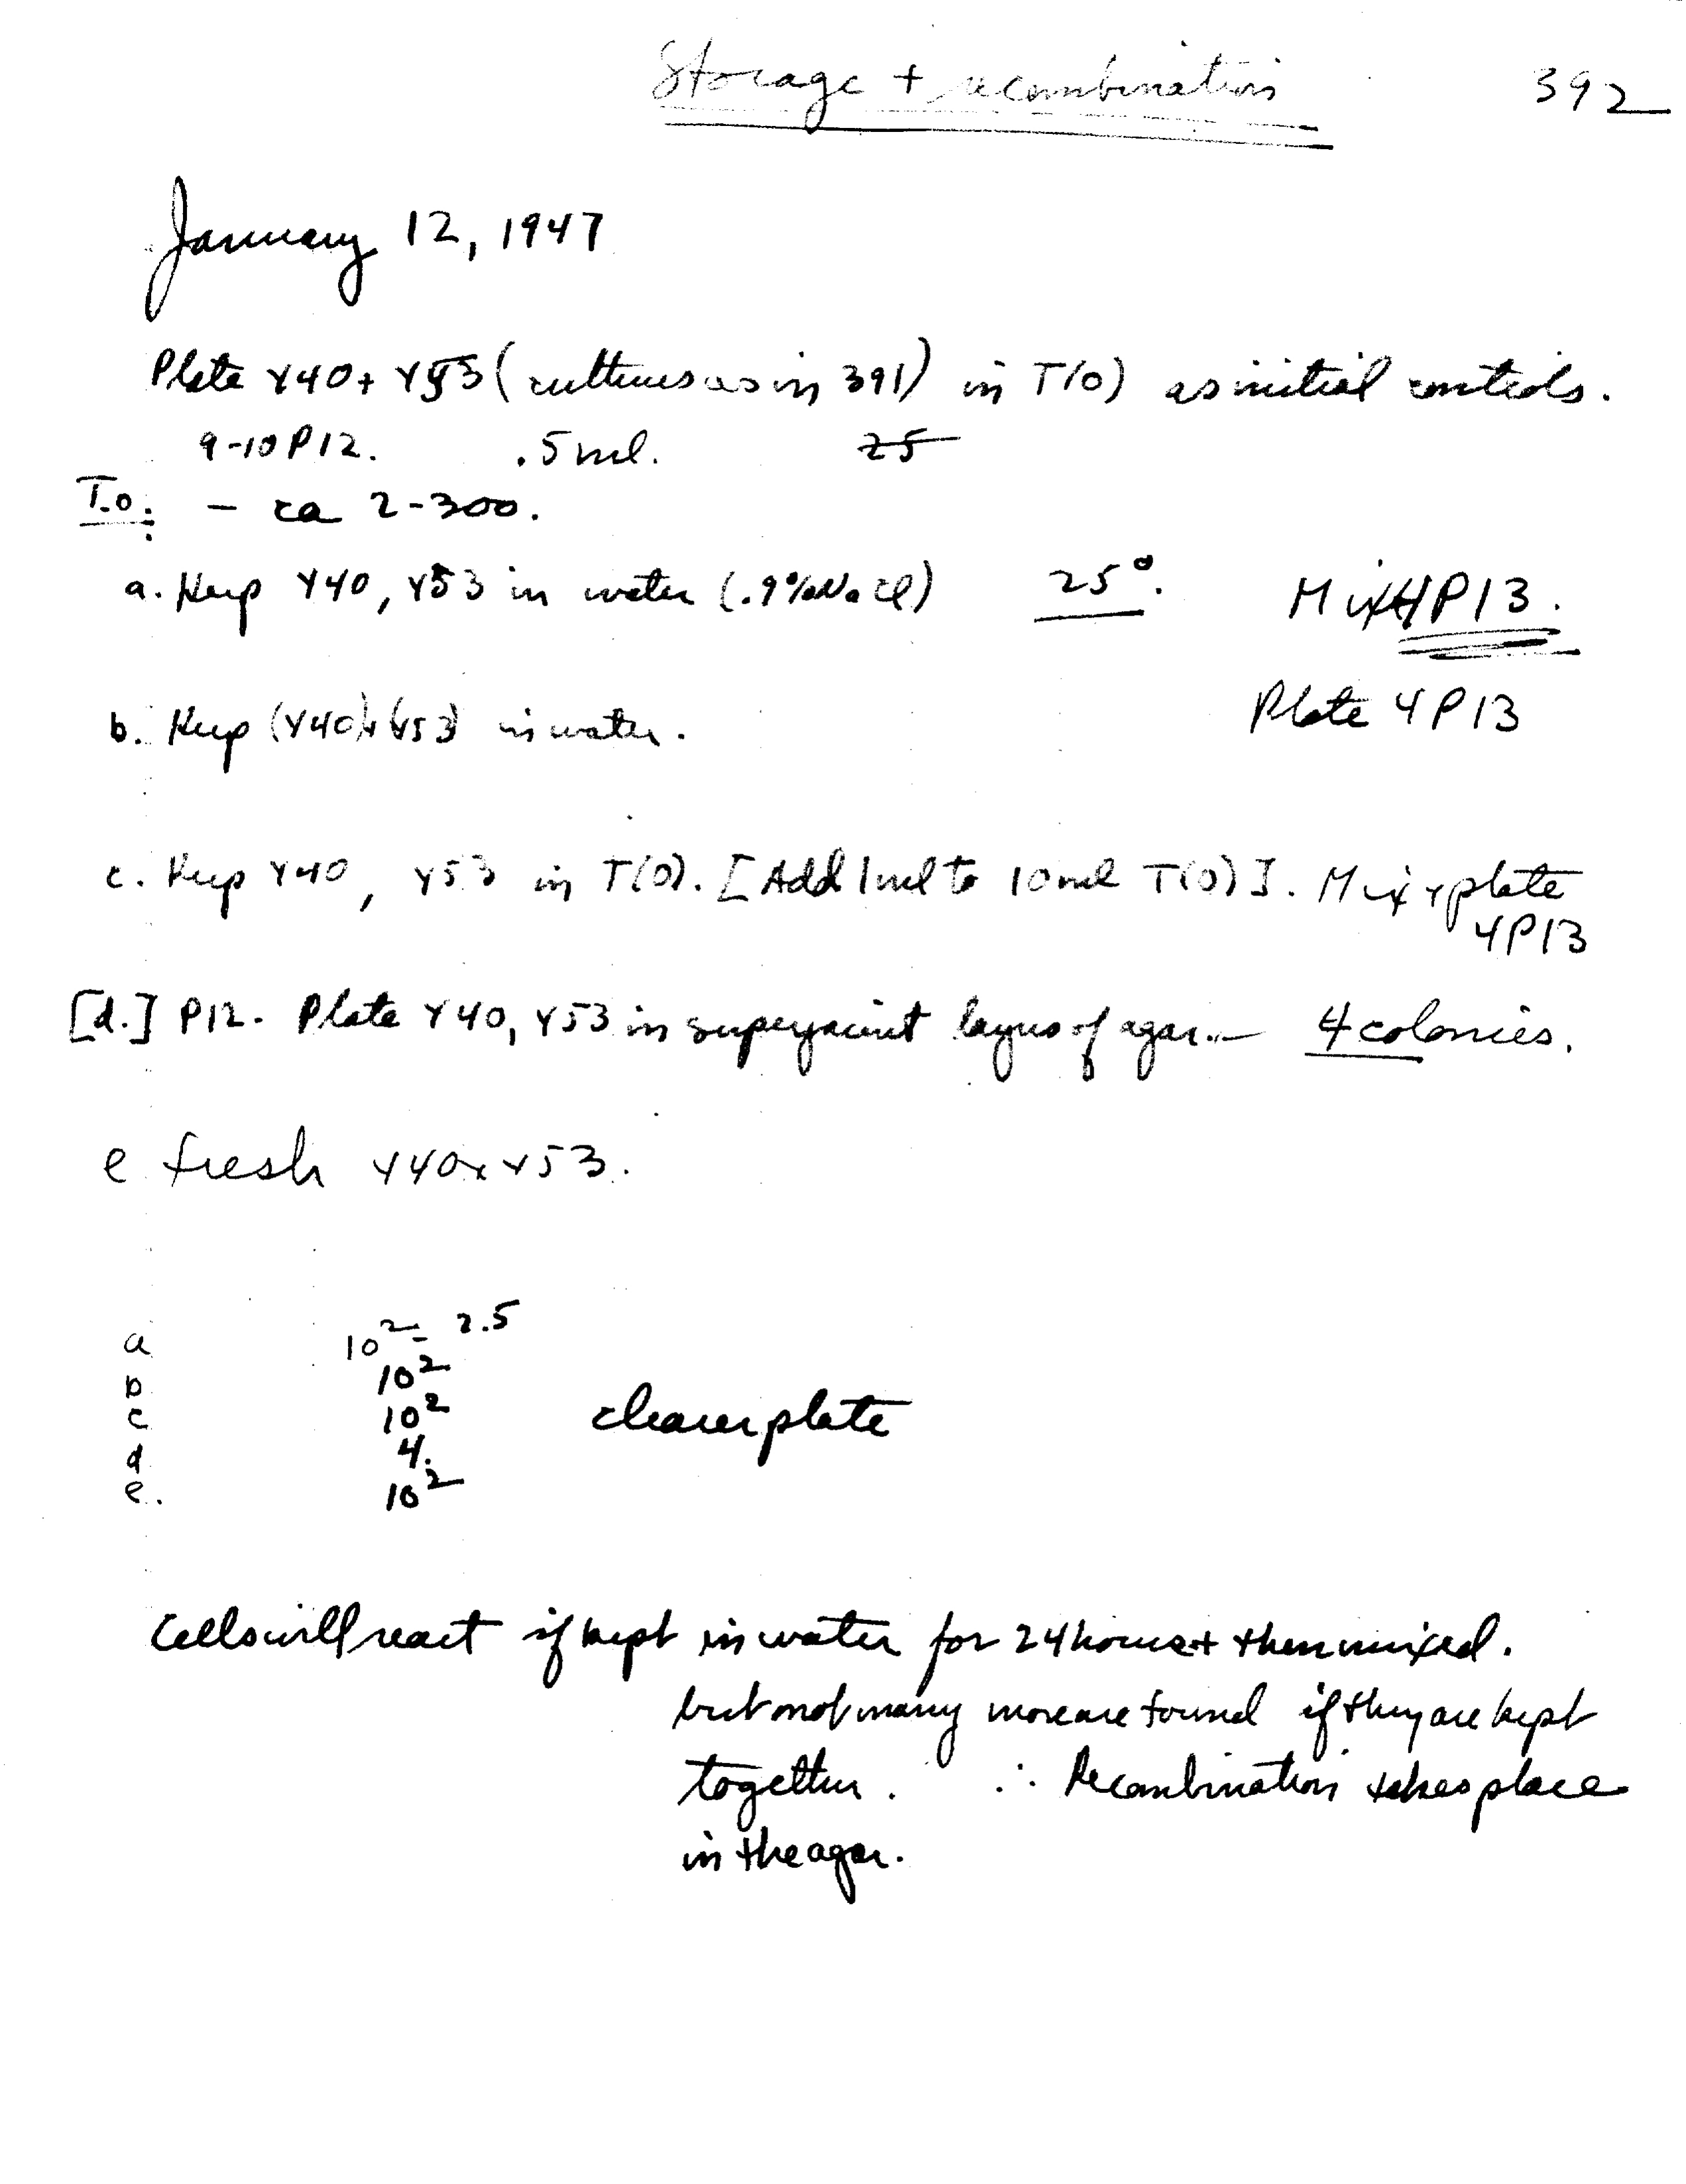 Storage + recombination 392
January 12, 1947
Plate Y40 + Y53 (cultures as in 391) in T(0) as initial controls.
9-10 P12. .5 ml. 25
T.o: – ca 2-300.
a. Keep Y40, Y53 in water (.9% NaCl) 25°. Mix 4P13.
Plate 4P13
b. Keep (Y40)+(Y53) in water.
c. Keep Y40, Y53 in T(0). [Add 1 ml to 10 ml T(0)]. Mix + plate
4P13
[d.] P12. Plate Y40, Y53 in superjacent layers of agar. – 4 colonies.
e fresh Y40 x Y53.
a 10² - 2.5
b 10²
c 10² clearer plate
d 4.
e. 10²
Cells will react if kept in water for 24 hours + then mixed.
but not many more are found if they are kept
together. ∴ Recombination takes place
in the agar.